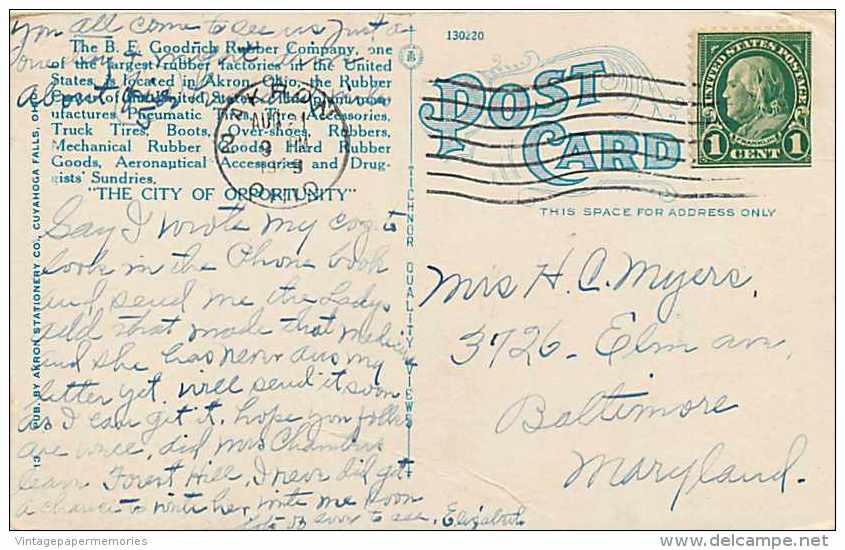 you all come to see us just a
The B. F. Goodrich Rubber Company, one
of the largest rubber factories in the United
States, is located in Akron, Ohio, the Rubber
about
Pneumatic Tires, Tire Accessories,
Truck Tires, Boots, Over-shoes, Rubbers,
Mechanical Rubber Goods, Hard Rubber
Goods, Aeronaptical Accessories and Drug-
gists' Sundries.
"THE CITY OF OPPORTUNITY"
Say I wrote my coz to
look in the Phone book
and send me the Ladys
add that made that medicine
and she has never ans my
letter yet. will send it soon
as I can get it. hope you folks
are well, did Mrs Chambers
leave Forest Hill, I never did get
a chance to write her, write me soon
to see. Elizabeth
13 PUB. BY AKRON STATIONERY CO., CUYAHOGA FALLS, OHIO
TICHNOR QUALITY VIEWS
130220
POST CARD
THIS SPACE FOR ADDRESS ONLY
AUG 1
OHIO
UNITED STATES POSTAGE
FRANKLIN
1 CENT 1
Mrs H. C. Myers,
3726- Elm ave,
Baltimore
Maryland.
Vintagepapermemories
delcampe.net